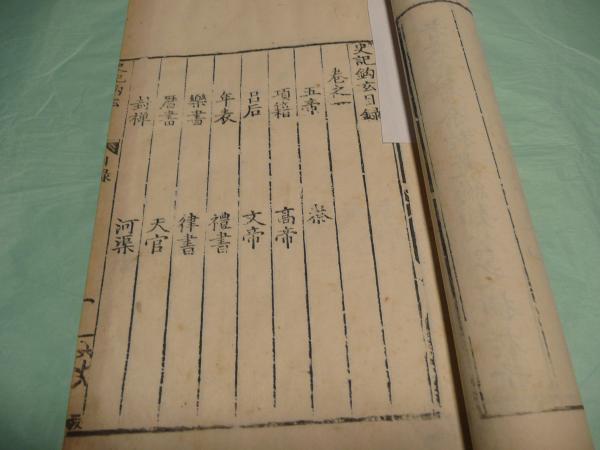 史記鈎玄目録
卷之一
五帝 秦
項籍 高帝
呂后 文帝
年表 禮書
樂書 律書
曆書 天官
封禅 河渠
目録